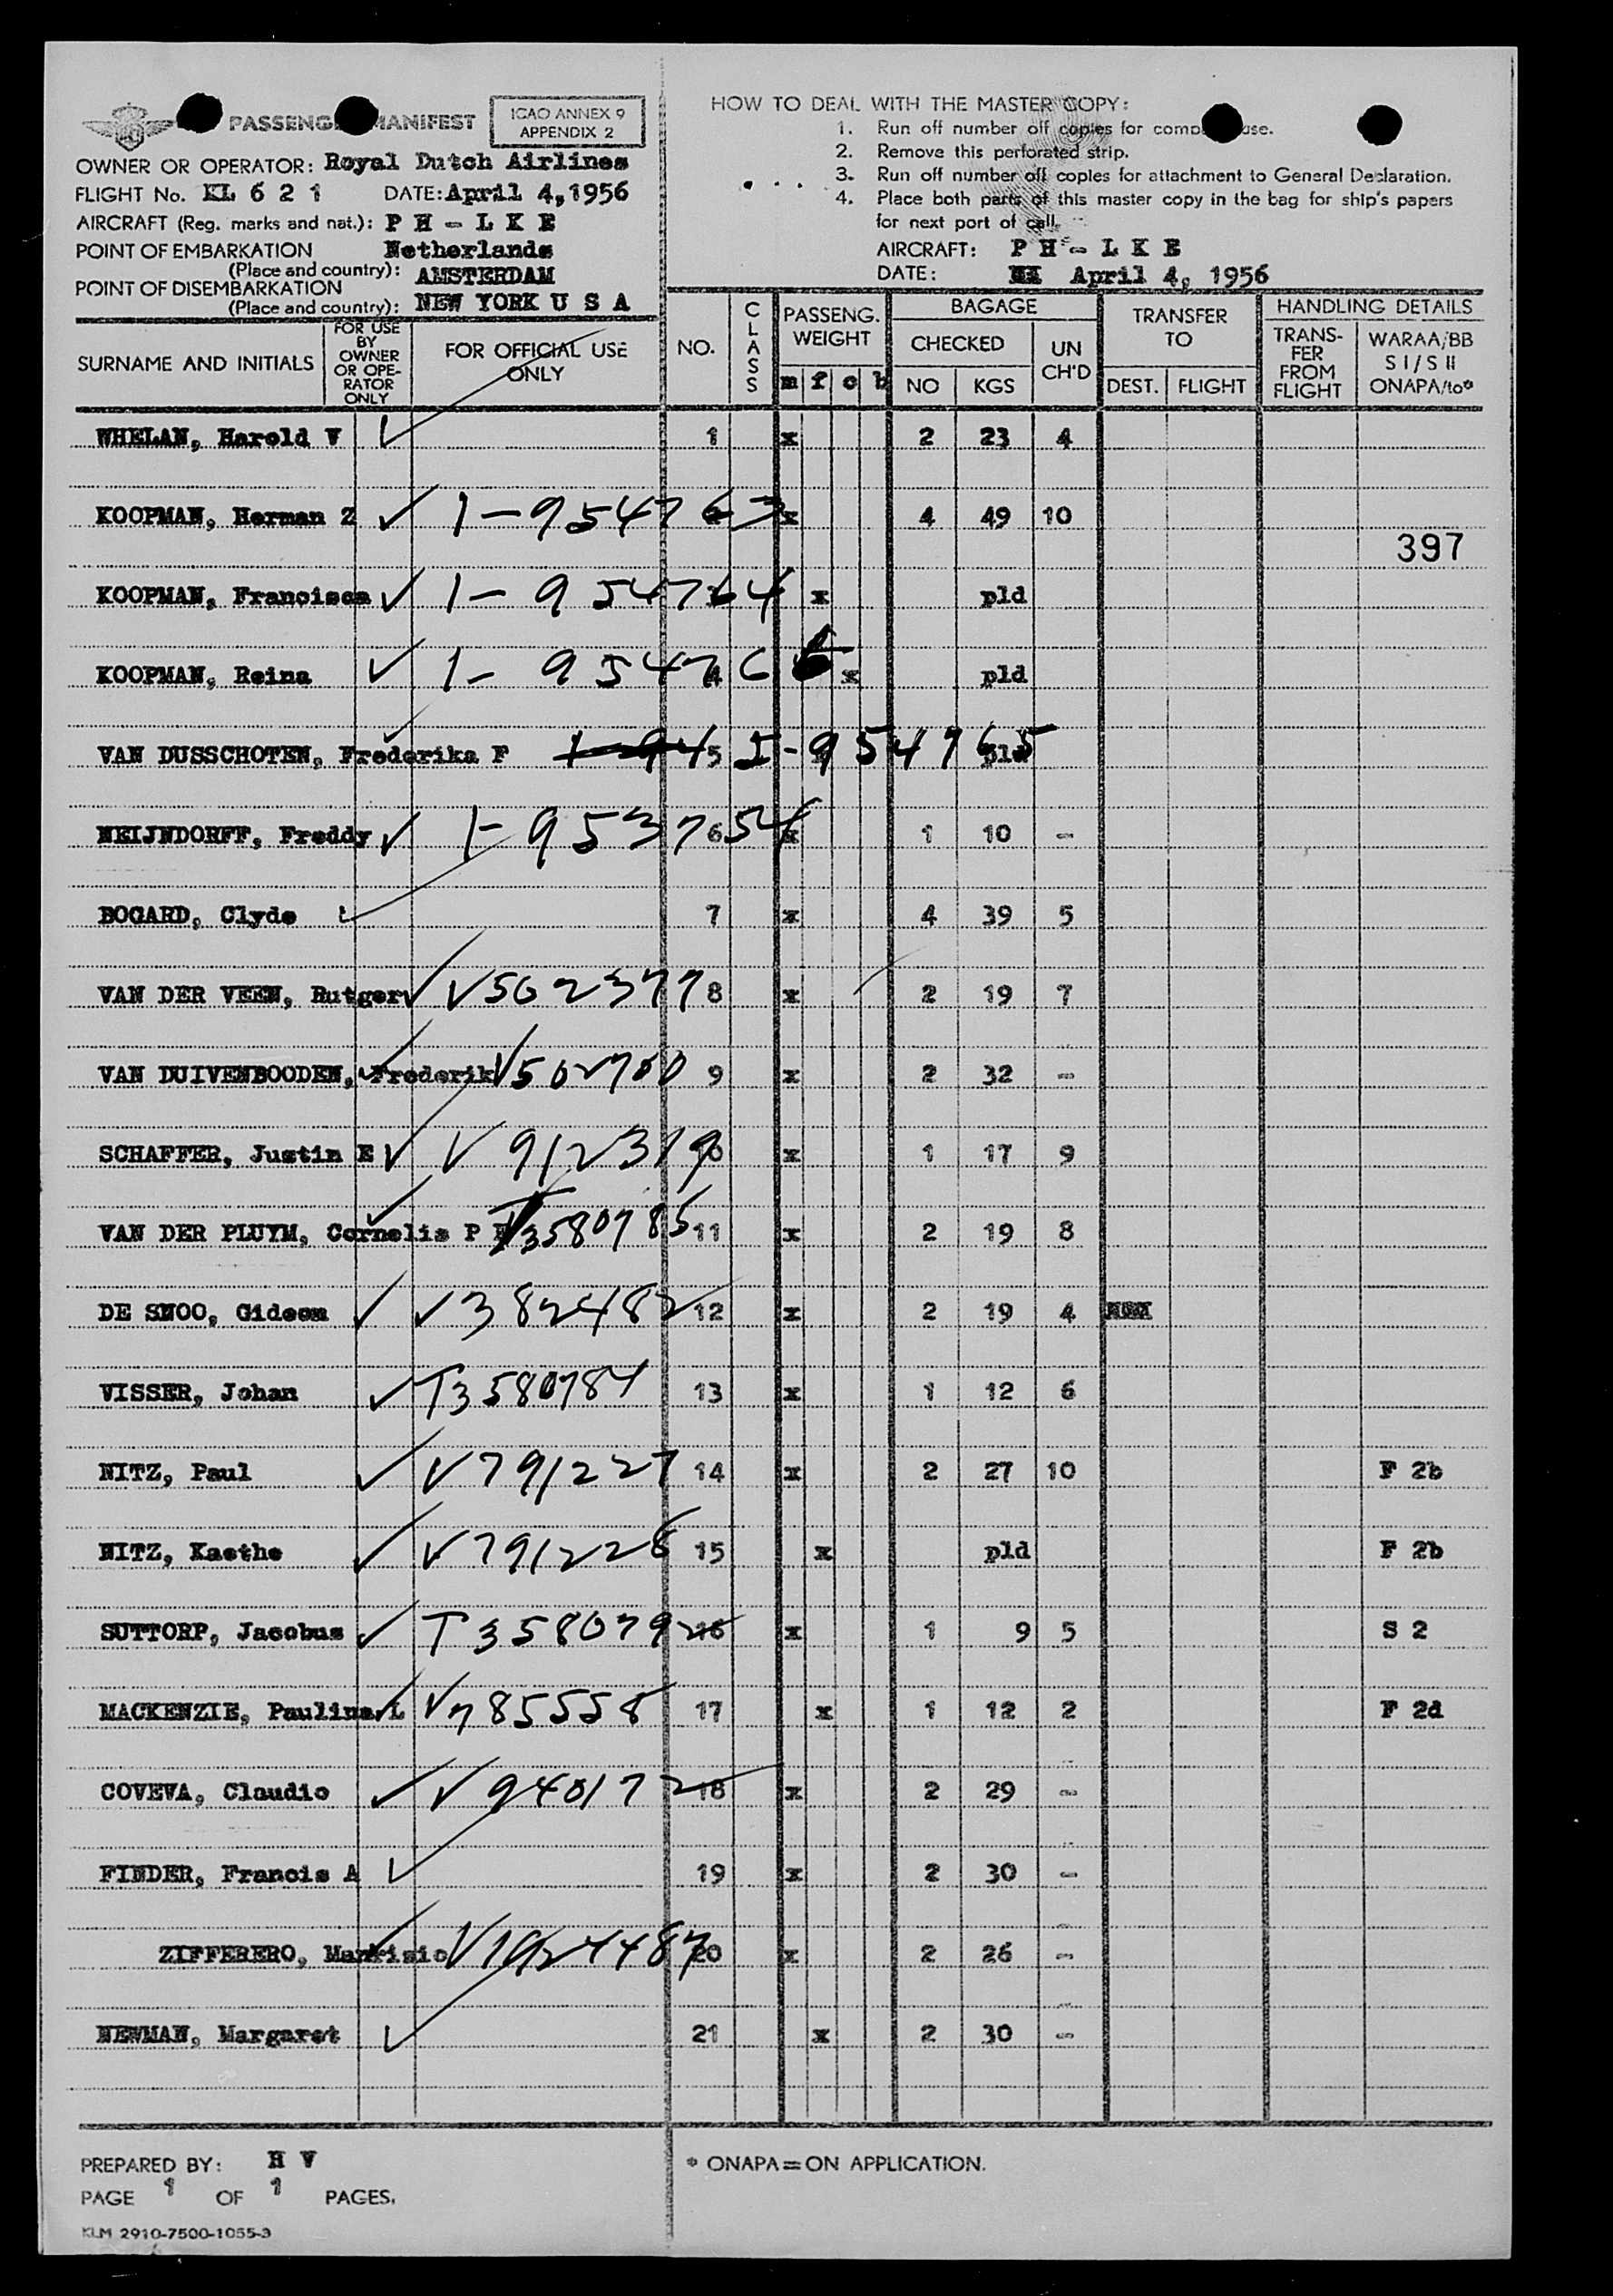 PASSENG MANIFEST
ICAO ANNEX 9
APPENDIX 2
OWNER OR OPERATOR: Royal Dutch Airlines
FLIGHT No. KL 6 2 1 DATE: April 4, 1956
AIRCRAFT (Reg. marks and nat.): P H - L K E
POINT OF EMBARKATION Netherlands
(Place and country): AMSTERDAM
POINT OF DISEMBARKATION
(Place and country): NEW YORK U S A
HOW TO DEAL WITH THE MASTER COPY:
1. Run off number off copies for comp use.
2. Remove this perforated strip.
3. Run off number off copies for attachment to General Declaration.
4. Place both parts of this master copy in the bag for ship's papers
for next port of call.
AIRCRAFT: P H - L K E
DATE: April 4, 1956
SURNAME AND INITIALS
FOR USE
BY
OWNER
OR OPE-
RATOR
ONLY
FOR OFFICIAL USE
ONLY
NO.
CLASS
PASSENG.
WEIGHT
m f c b
BAGAGE
CHECKED
NO KGS
UN
CH'D
TRANSFER
TO
DEST. FLIGHT
HANDLING DETAILS
TRANS-
FER
FROM
FLIGHT
WARAA/BB
S I / S II
ONAPA/to*
WHELAN, Harold V 1 x 2 23 4
KOOPMAN, Herman Z 1-954763 x 4 49 10
397
KOOPMAN, Francisca 1-954764 x pld
KOOPMAN, Reina 1-95476 4 x pld
VAN DUSSCHOTEN, Frederika F 5 I-954765 pld
NEIJNDORFF, Freddy 1-953754 6 x 1 10 -
BOGARD, Clyde 7 x 4 39 5
VAN DER VEEN, Rutger V502377 8 x 2 19 7
VAN DUIVENBOODEN, Frederik V502700 9 x 2 32 -
SCHAFFER, Justin E V912319 x 1 17 9
VAN DER PLUYM, Cornelis P T3580785 11 x 2 19 8
DE SNOO, Gideon V382482 12 x 2 19 4
VISSER, Johan T3580784 13 x 1 12 6
NITZ, Paul V791227 14 x 2 27 10 F 2b
NITZ, Kaethe V791228 15 x pld F 2b
SUTTORP, Jacobus T3580792 16 x 1 9 5 S 2
MACKENZIE, Paulina L V785558 17 x 1 12 2 F 2d
COVEVA, Claudio V940172 18 x 2 29 -
FINDER, Francis A 19 x 2 30 -
ZIFFERERO, Maurisio V1924487 20 x 2 26 -
NEWMAN, Margaret 21 x 2 30 -
PREPARED BY: H V
PAGE 1 OF 1 PAGES.
* ONAPA = ON APPLICATION.
KLM 2910-7500-1055-3